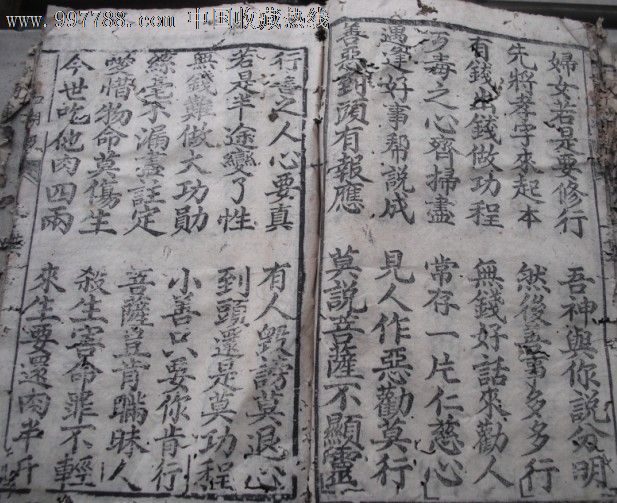 www.997788.com 中国收藏热线
婦女若是要修行 吾神與你說分明
先將孝字來起本 然後善事多多行
有錢出錢做功程 無錢好話來勸人
之心齊掃盡 常存一片仁慈心
遇逢好事帮説成 見人作惡勸莫行
善惡到頭有報應 莫説菩薩不顯靈
行善之人心要真 有人毀謗莫退心
若是半途變了性 到頭還是莫功程
無錢難做大功勛 小善只要你肯行
絲毫不漏盡註定 菩薩豈肯瞞昧人
當惜物命莫傷生 殺生害命罪不輕
今世吃他肉四兩 來生要還肉半斤